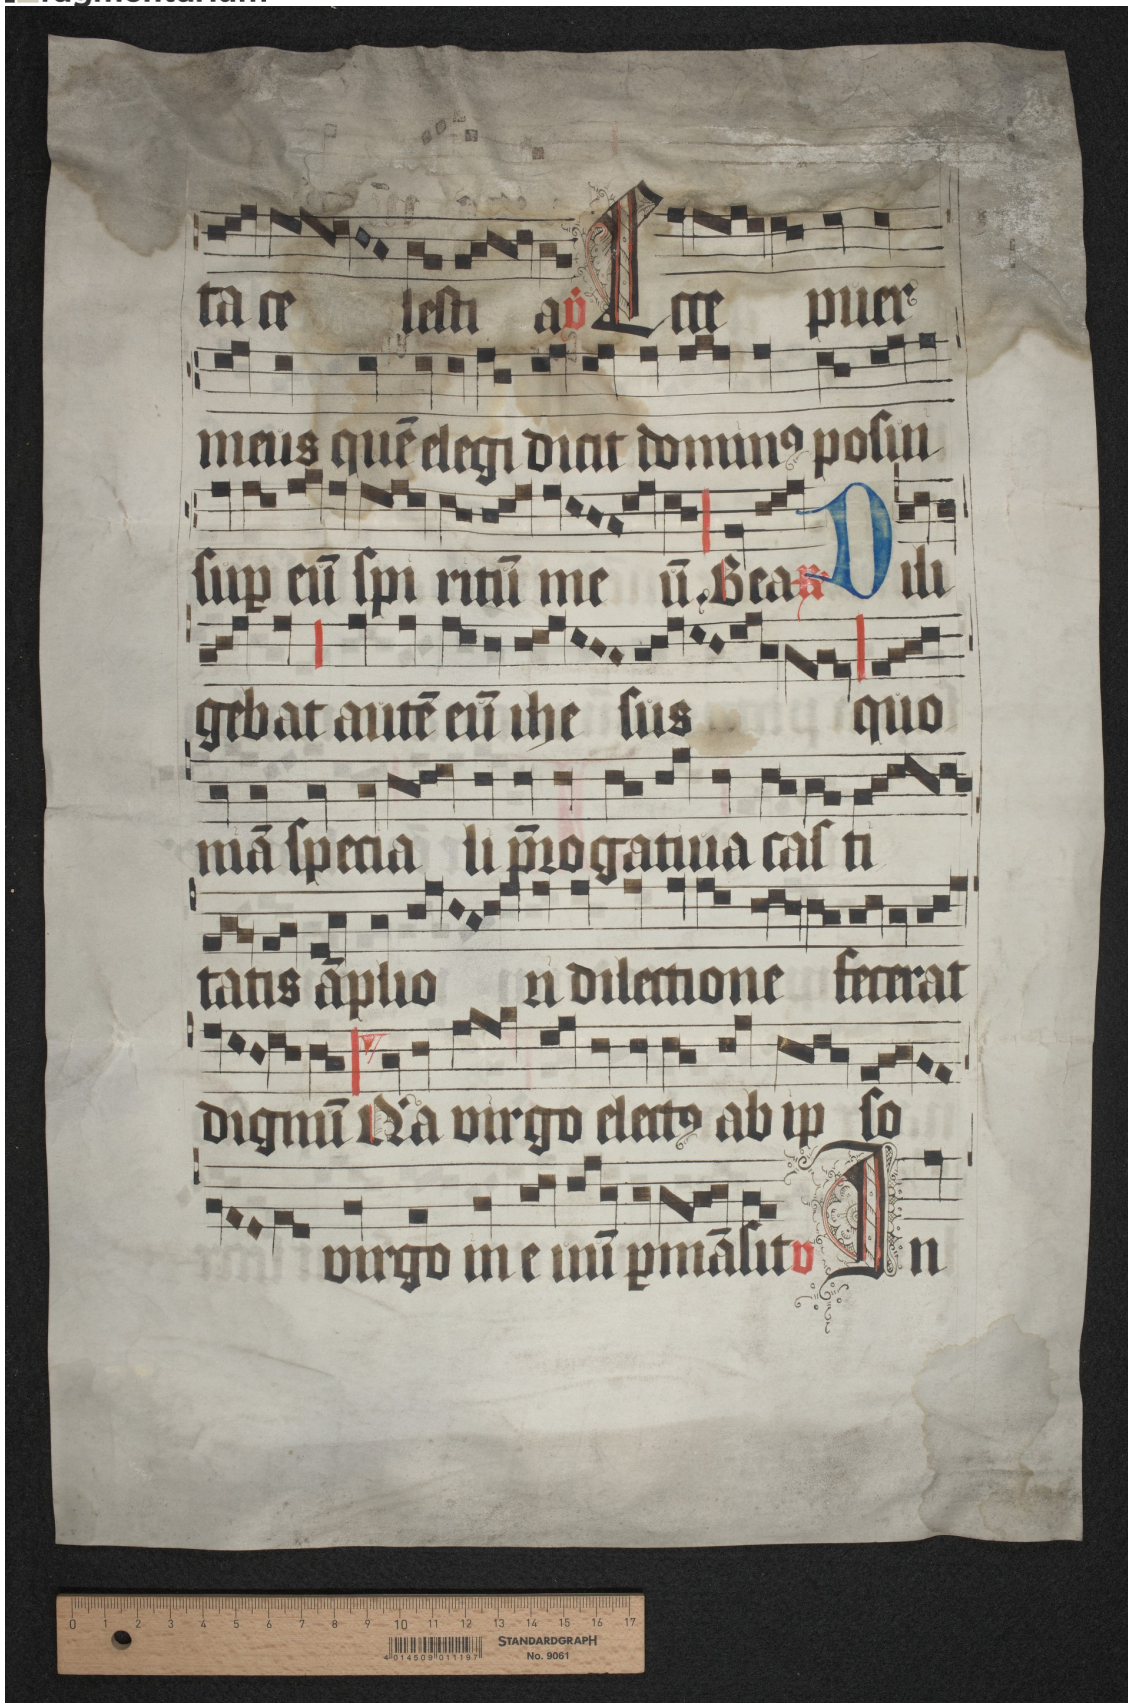 ta ce lesti a v̉ Ecce puer
meus quē elegi dicit dominꝯ posui
suꝑ eū spi ritū me ū. Bea ꝶ Dili
gebat autē eū ihe sus quo
mā specia li p̄rogatiua cas ti
tatis āplio ri dilectione fecerat
dignū Qꝛ a virgo electꝯ ab ip so
virgo in e uū ꝑmāsit v In
0 1 2 3 4 5 6 7 8 9 10 11 12 13 14 15 16 17
4 014509 011197
STANDARDGRAPH
No. 9061